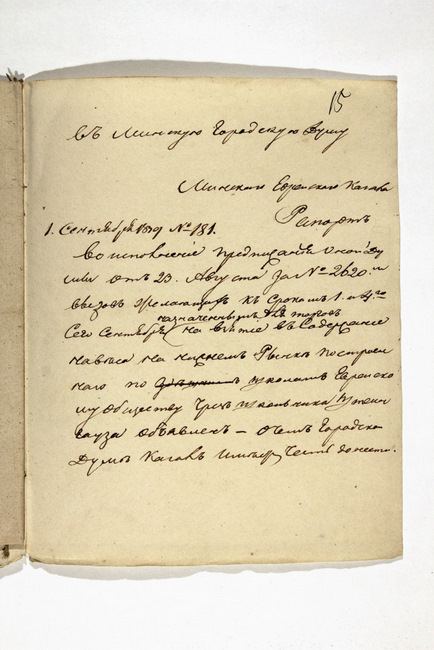 15
въ Минскую Городскую Думу
Минскаго Еврейскаго Кагала
Рапортъ
1. Сентября 1829 № 181.
Во исполненіе предписанія оной Ду
мы отъ 23. Августа за № 2620.м
вызовъ желающихъ къ срокамъ 1. и 4.го
назначеннымъ для торговъ
Сего Сентября на взятіе въ Содержаніе
навѣса на нижнемъ Рынкѣ построен
наго по Еврейско
му обществу чрезъ
объявленъ — о чемъ Городской
Думѣ Кагалъ имѣетъ честь донести.